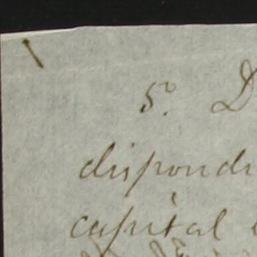 5º D
dispondr
capital